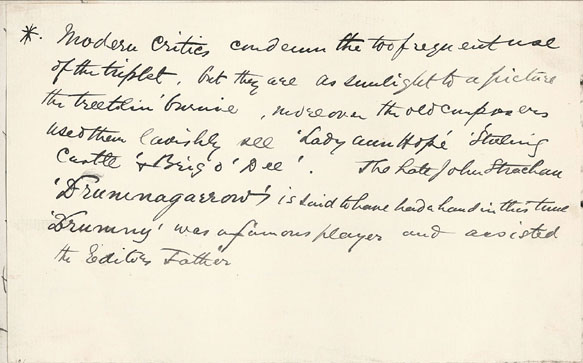 *. Modern Critics condemn the too frequent use
of the triplet, but they are as sunlight to a picture
the treetlin' burnie, moreover the old composers
used them lavishly see 'Lady Ann Hope' 'Stirling
Castle' & Brig o' Dee'. The late John Strachan
'Drumnagarrow's is said to have had a hand in this tune
'Drummy' was a famous player and assisted
the Editors Father